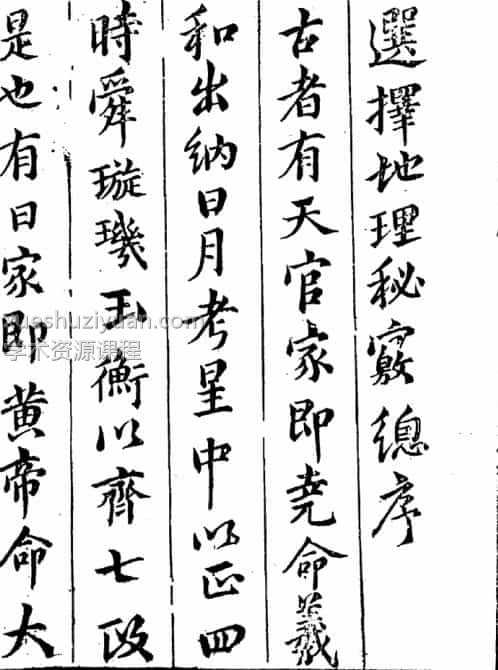 選擇地理秘竅總序
古者有天官家即堯命羲
和出納日月考星中以正四
時舜璇璣玉衡以齊七政
是也有日家即黃帝命大
xueshuziyuan.com
学术资源课程